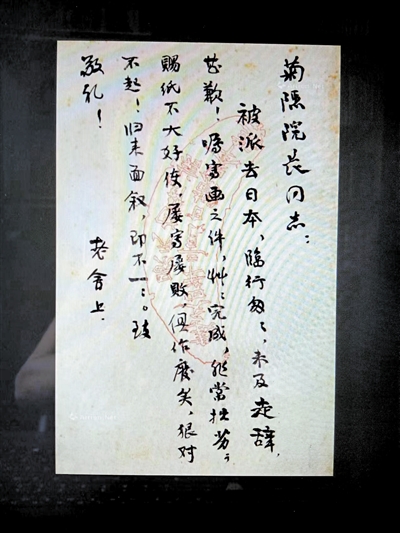 菊隐院长同志：
被派去日本，临行匆〻，未及走辞，
甚歉！嘱写画之件，艸〻完成，非常拙劣；
赐纸不大好使，屡写屡败，俱作废矣，很对
不起！归来面叙，即不一〻。致
敬礼！
老舍上.